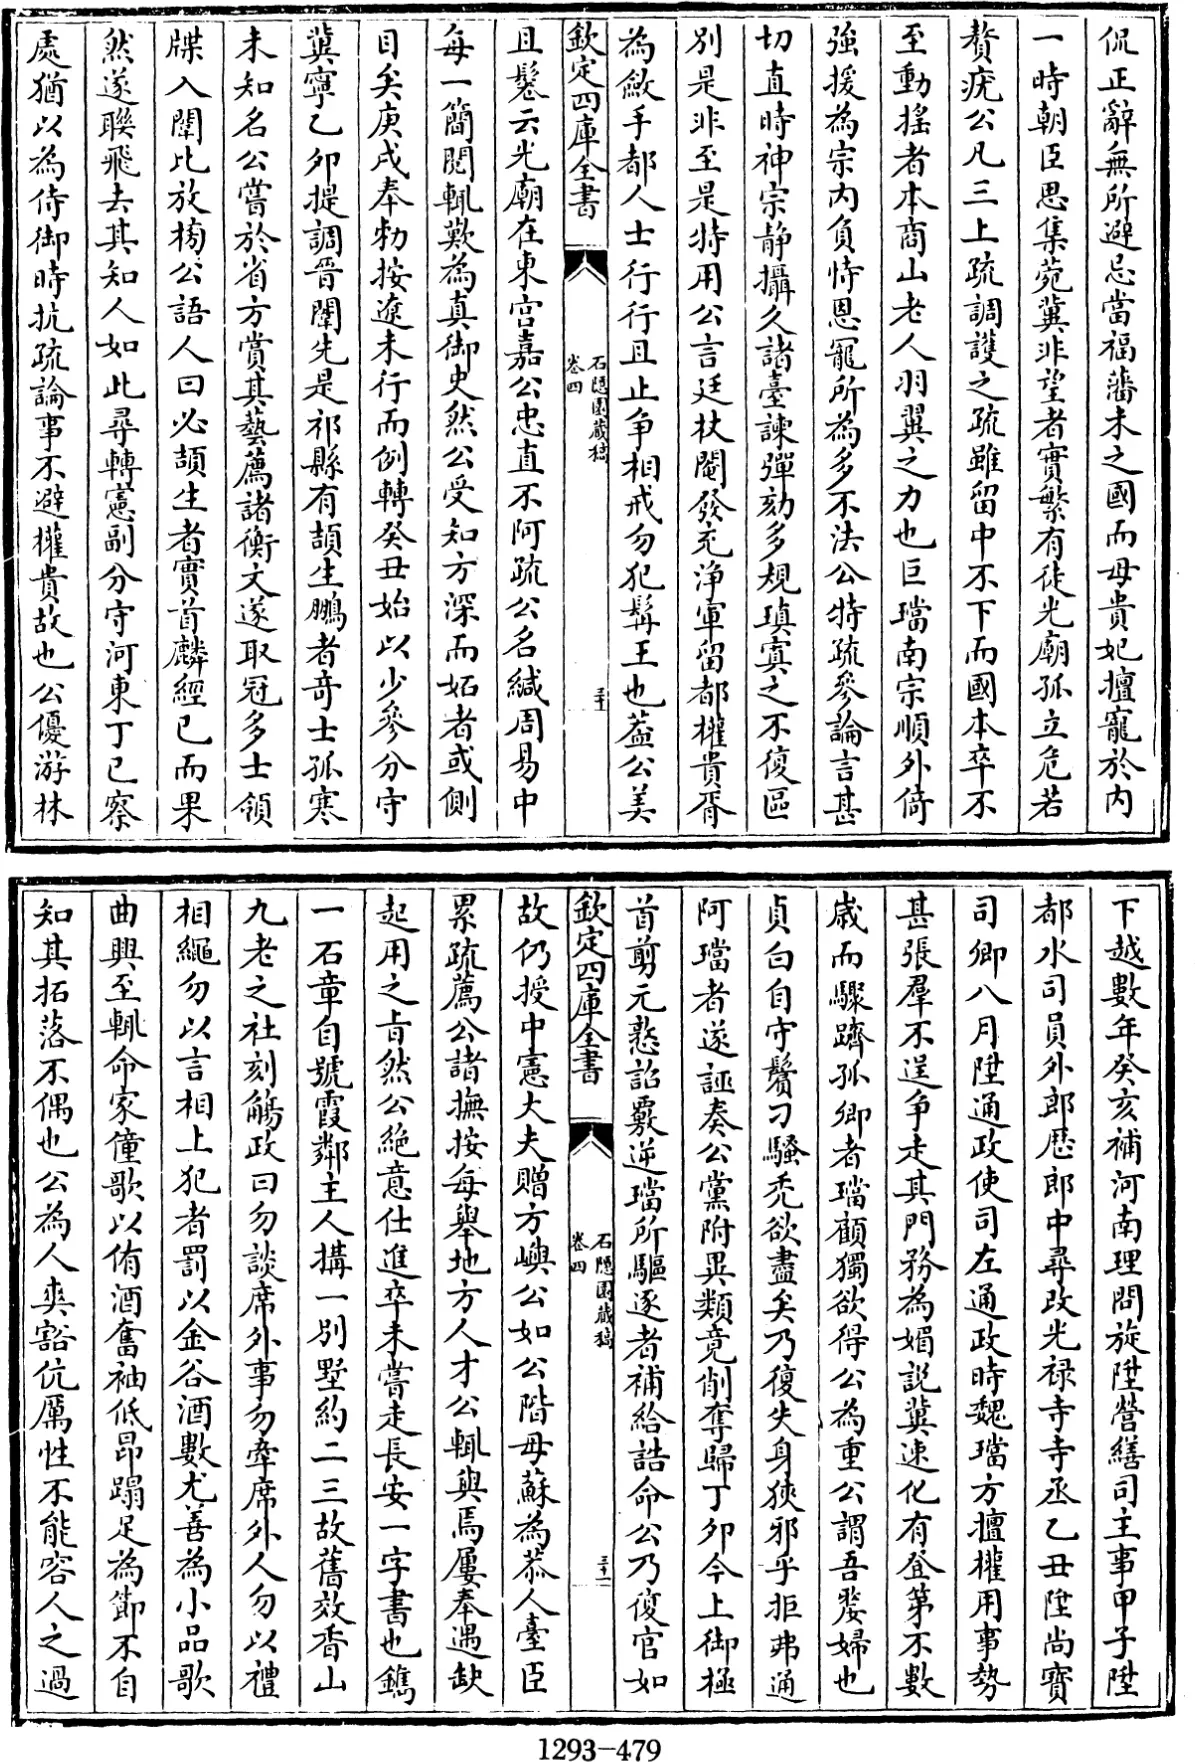 侃正辭無所避忌當福藩未之國而母貴妃擅寵於內
一時朝臣思集菀冀非望者實繁有徒光廟孤立危若
贅疣公凡三上疏調護之疏雖留中不下而國本卒不
至動搖者本商山老人羽翼之力也巨璫南宗順外倚
強援為宗內負恃恩寵所為多不法公特疏參論言甚
切直時神宗静攝久諸臺諫彈劾多規瑱寘之不復區
別是非至是特用公言廷杖閹發充浄軍留都權貴胥
為斂手都人士行行且止争相戒勿犯髯王也葢公美
欽定四庫全書
石隱園藏稿
卷四
三十
且鬈云光廟在東宫嘉公忠直不阿疏公名緘周易中
每一簡閱輒歎為真御史然公受知方深而妬者或側
目矣庚戌奉勅按遼未行而例轉癸丑始以少參分守
冀寧乙夘提調晉闈先是祁縣有頡生鵬者竒士孤寒
未知名公嘗於省方賞其藝薦諸衡文遂取冠多士領
牒入闈比放榜公語人曰必頡生者實首麟經已而果
然遂聯飛去其知人如此尋轉憲副分守河東丁已察
處猶以為侍御時抗疏論事不避權貴故也公優游林
下越數年癸亥補河南理問旋陞營繕司主事甲子陞
都水司員外郎歴郎中尋改光禄寺寺丞乙丑陞尚寶
司卿八月陞通政使司左通政時魏璫方擅權用事勢
甚張羣不逞争走其門務為媚説冀速化有登第不數
歳而驟躋孤卿者璫顧獨欲得公為重公謂吾嫠婦也
貞白自守鬢刁騷秃欲盡矣乃復失身狹邪乎拒弗通
阿璫者遂誣奏公黨附異類竟削奪歸丁夘今上御極
首剪元憝詔覈逆璫所驅逐者補給誥命公乃復官如
欽定四庫全書
石隱園藏稿
卷四
三十一
故仍授中憲大夫贈方嶼公如公階母蘇為恭人臺臣
累疏薦公諸撫按每舉地方人才公輒與焉屢奉遇缺
起用之㫖然公絶意仕進卒未嘗走長安一字書也鐫
一石章自號霞鄰主人搆一别墅約二三故舊效香山
九老之社刻觴政曰勿談席外事勿牽席外人勿以禮
相繩勿以言相上犯者罰以金谷酒數尤善為小品歌
曲興至輒命家僮歌以侑酒奮袖低昂蹋足為節不自
知其拓落不偶也公為人爽豁伉厲性不能容人之過
1293-479